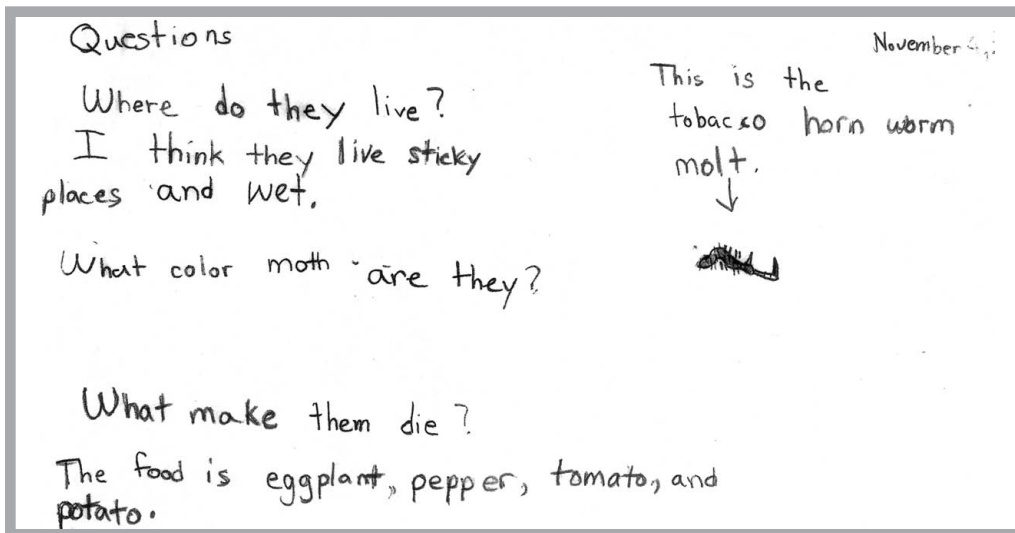 Questions
November
Where do they live?
I think they live sticky
places and wet.
What color moth are they?
What make them die?
The food is eggplant, pepper, tomato, and
potato.
This is the
tobacco horn worm
molt.